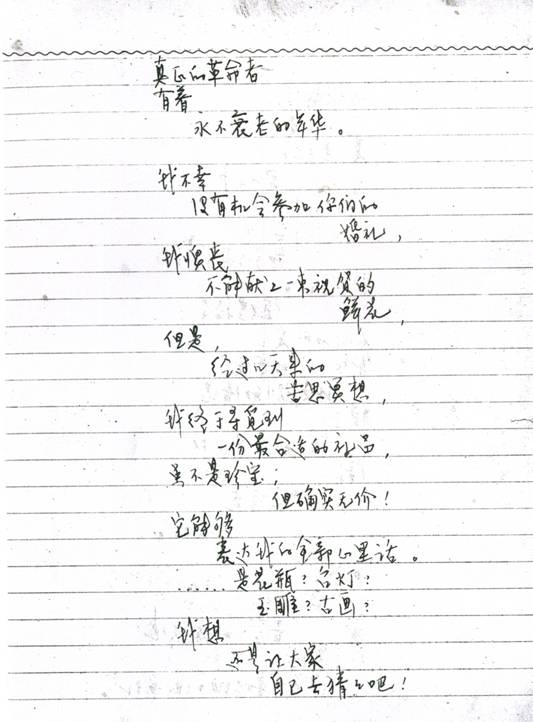 真正的革命者
有着
永不衰老的年华。
我不幸
没有机会参加你们的
婚礼，
我懊丧
不能献上一束祝贺的
鲜花，
但是，
经过几天来的
苦思冥想，
我终于寻觅到
一份最合适的礼品，
虽不是珍宝；
但确实无价！
它能够
表达我的全部心里话。
……是花瓶？台灯？
玉雕？古画？
我想
还是让大家
自己去猜它吧！